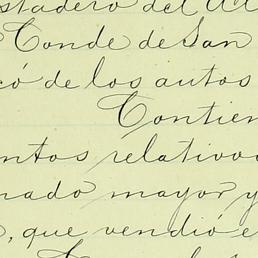 stadero del
Conde de San
có de los autos
Contien
ntos relativos
nado mayor y
, que vendió e